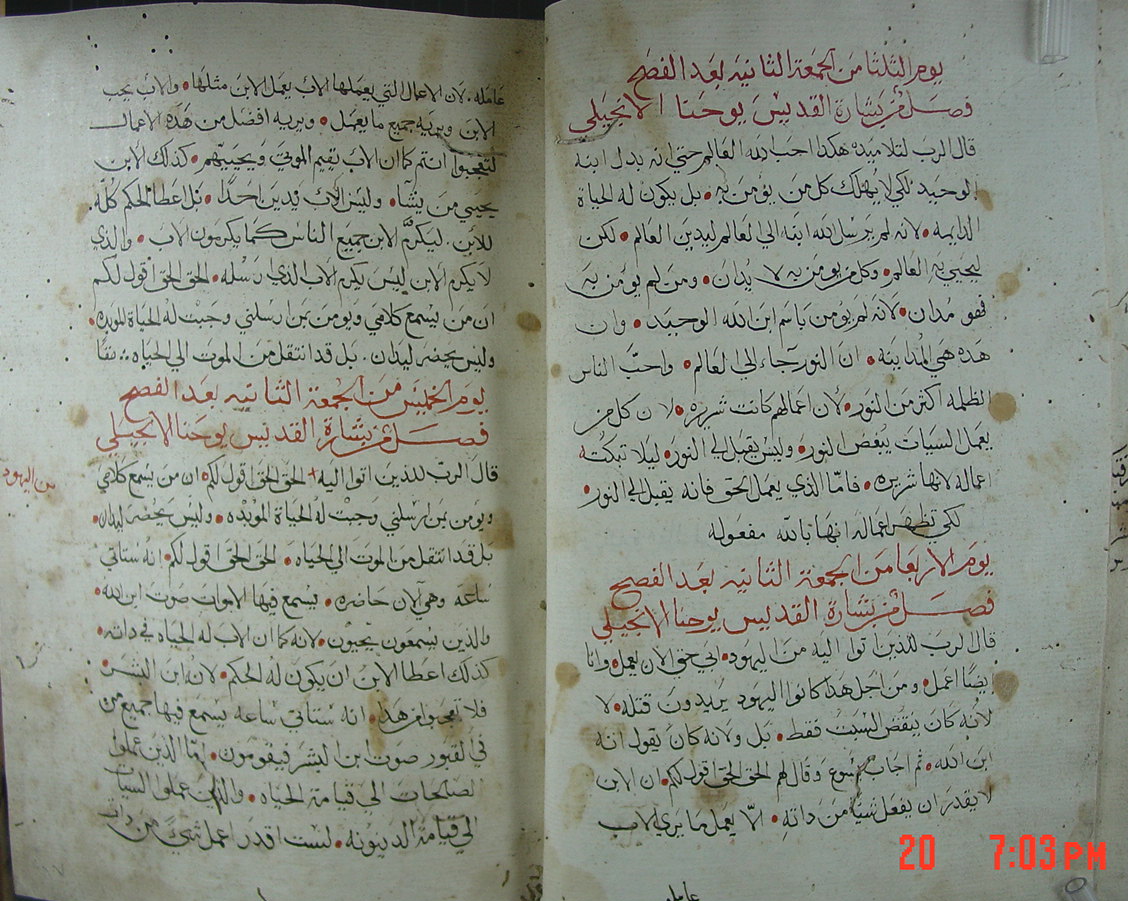 يوم الثلثا من الجمعة الثانيه بعد الفصح
فصل من بشارة القديس يوحنا الانجيلي
قال الرب لتلاميده هكدا احب الله العالم حتي انه بدل ابنه
الوحيد لكي لا يهلك كل من يومن به بل يكون له الحياة
الدايمه لانه لم يرسل الله ابنه الي العالم ليدين العالم لكن
ليحيي به العالم وكل من يومن به لا يدان ومن لم يومن به
فهو مدان لانه لم يومن باسم ابن الله الوحيد وان
هده هي المداينه ان النور جاء الي العالم واحب الناس
الظلمه اكثر من النور لان اعمالهم كانت شريره لان كل من
يعمل السيات يبغض النور وليس يقبل الي النور ليلا تبكت
اعماله لانها شريره فامّا الذي يعمل الحق فانه يقبل الي النور
لكي تظهر اعماله انها بالله مفعوله
يوم الاربعا من الجمعة الثانيه بعد الفصح
فصل من بشارة القديس يوحنا الانجيلي
قال الرب للدين اتوا اليه من اليهود ابي حتي الان يعمل وانا
ايضًا اعمل ومن اجل هدا كانوا اليهود يريدون قتله لا
لانه كان ينقض السبت فقط بل ولانه كان يقول انه
ابن الله ثم اجاب يسوع وقال لهم الحق الحق اقول لكم ان الابن
لا يقدر ان يفعل شيًا من داته الا يعمل ما يري الاب
عامله
عامله لان الاعمال التي يعملها الاب يعمل الابن مثلها والاب يحب
الابن ويريه جميع ما يعمل ويريه افضل من هده الاعمال
لتعجبوا انتم كما ان الاب يقيم الموتي ويحييهم كذلك الابن
يحيي من يشا وليس الاب يدين احدًا بل اعطا الحكم كله
للابن ليكرم الابن جميع الناس كما يكرمون الاب والذي
لا يكرم الابن ليس يكرم الاب الذي ارسله الحق الحق اقول لكم
ان من يسمع كلامي ويومن بمن ارسلني وجبت له الحياة الموبده
وليس يحضر ليدان بل قد انتقل من الموت الي الحياه
يوم الخميس من الجمعة الثانيه بعد الفصح
فصل من بشارة القديس يوحنا الانجيلي
قال الرب للذين اتوا اليه + الحق الحق اقول لكم ان من يسمع كلامي
من اليهود
ويومن بمن ارسلني وجبت له الحياة الموبده وليس يحضر ليدان
بل قد انتقل من الموت الي الحياه الحق الحق اقول لكم انه ستاتي
ساعه وهي الان حاضره يسمع فيها الاموات صوت ابن الله
والذين يسمعون يحيون لانه كما ان الاب له الحياه في داته
كذلك اعطا الابن ان يكون له الحكم لانه ابن البشر
فلا تعجبوا من هدا انه ستاتي ساعه يسمع فيها جميع من
في القبور صوت ابن البشر فيقومون امّا الذين عملوا
الصالحات الي قيامة الحياه والذين عملوا السيات
الي قيامة الدينونه لست اقدر اعمل شي من دات
20 7:03 PM